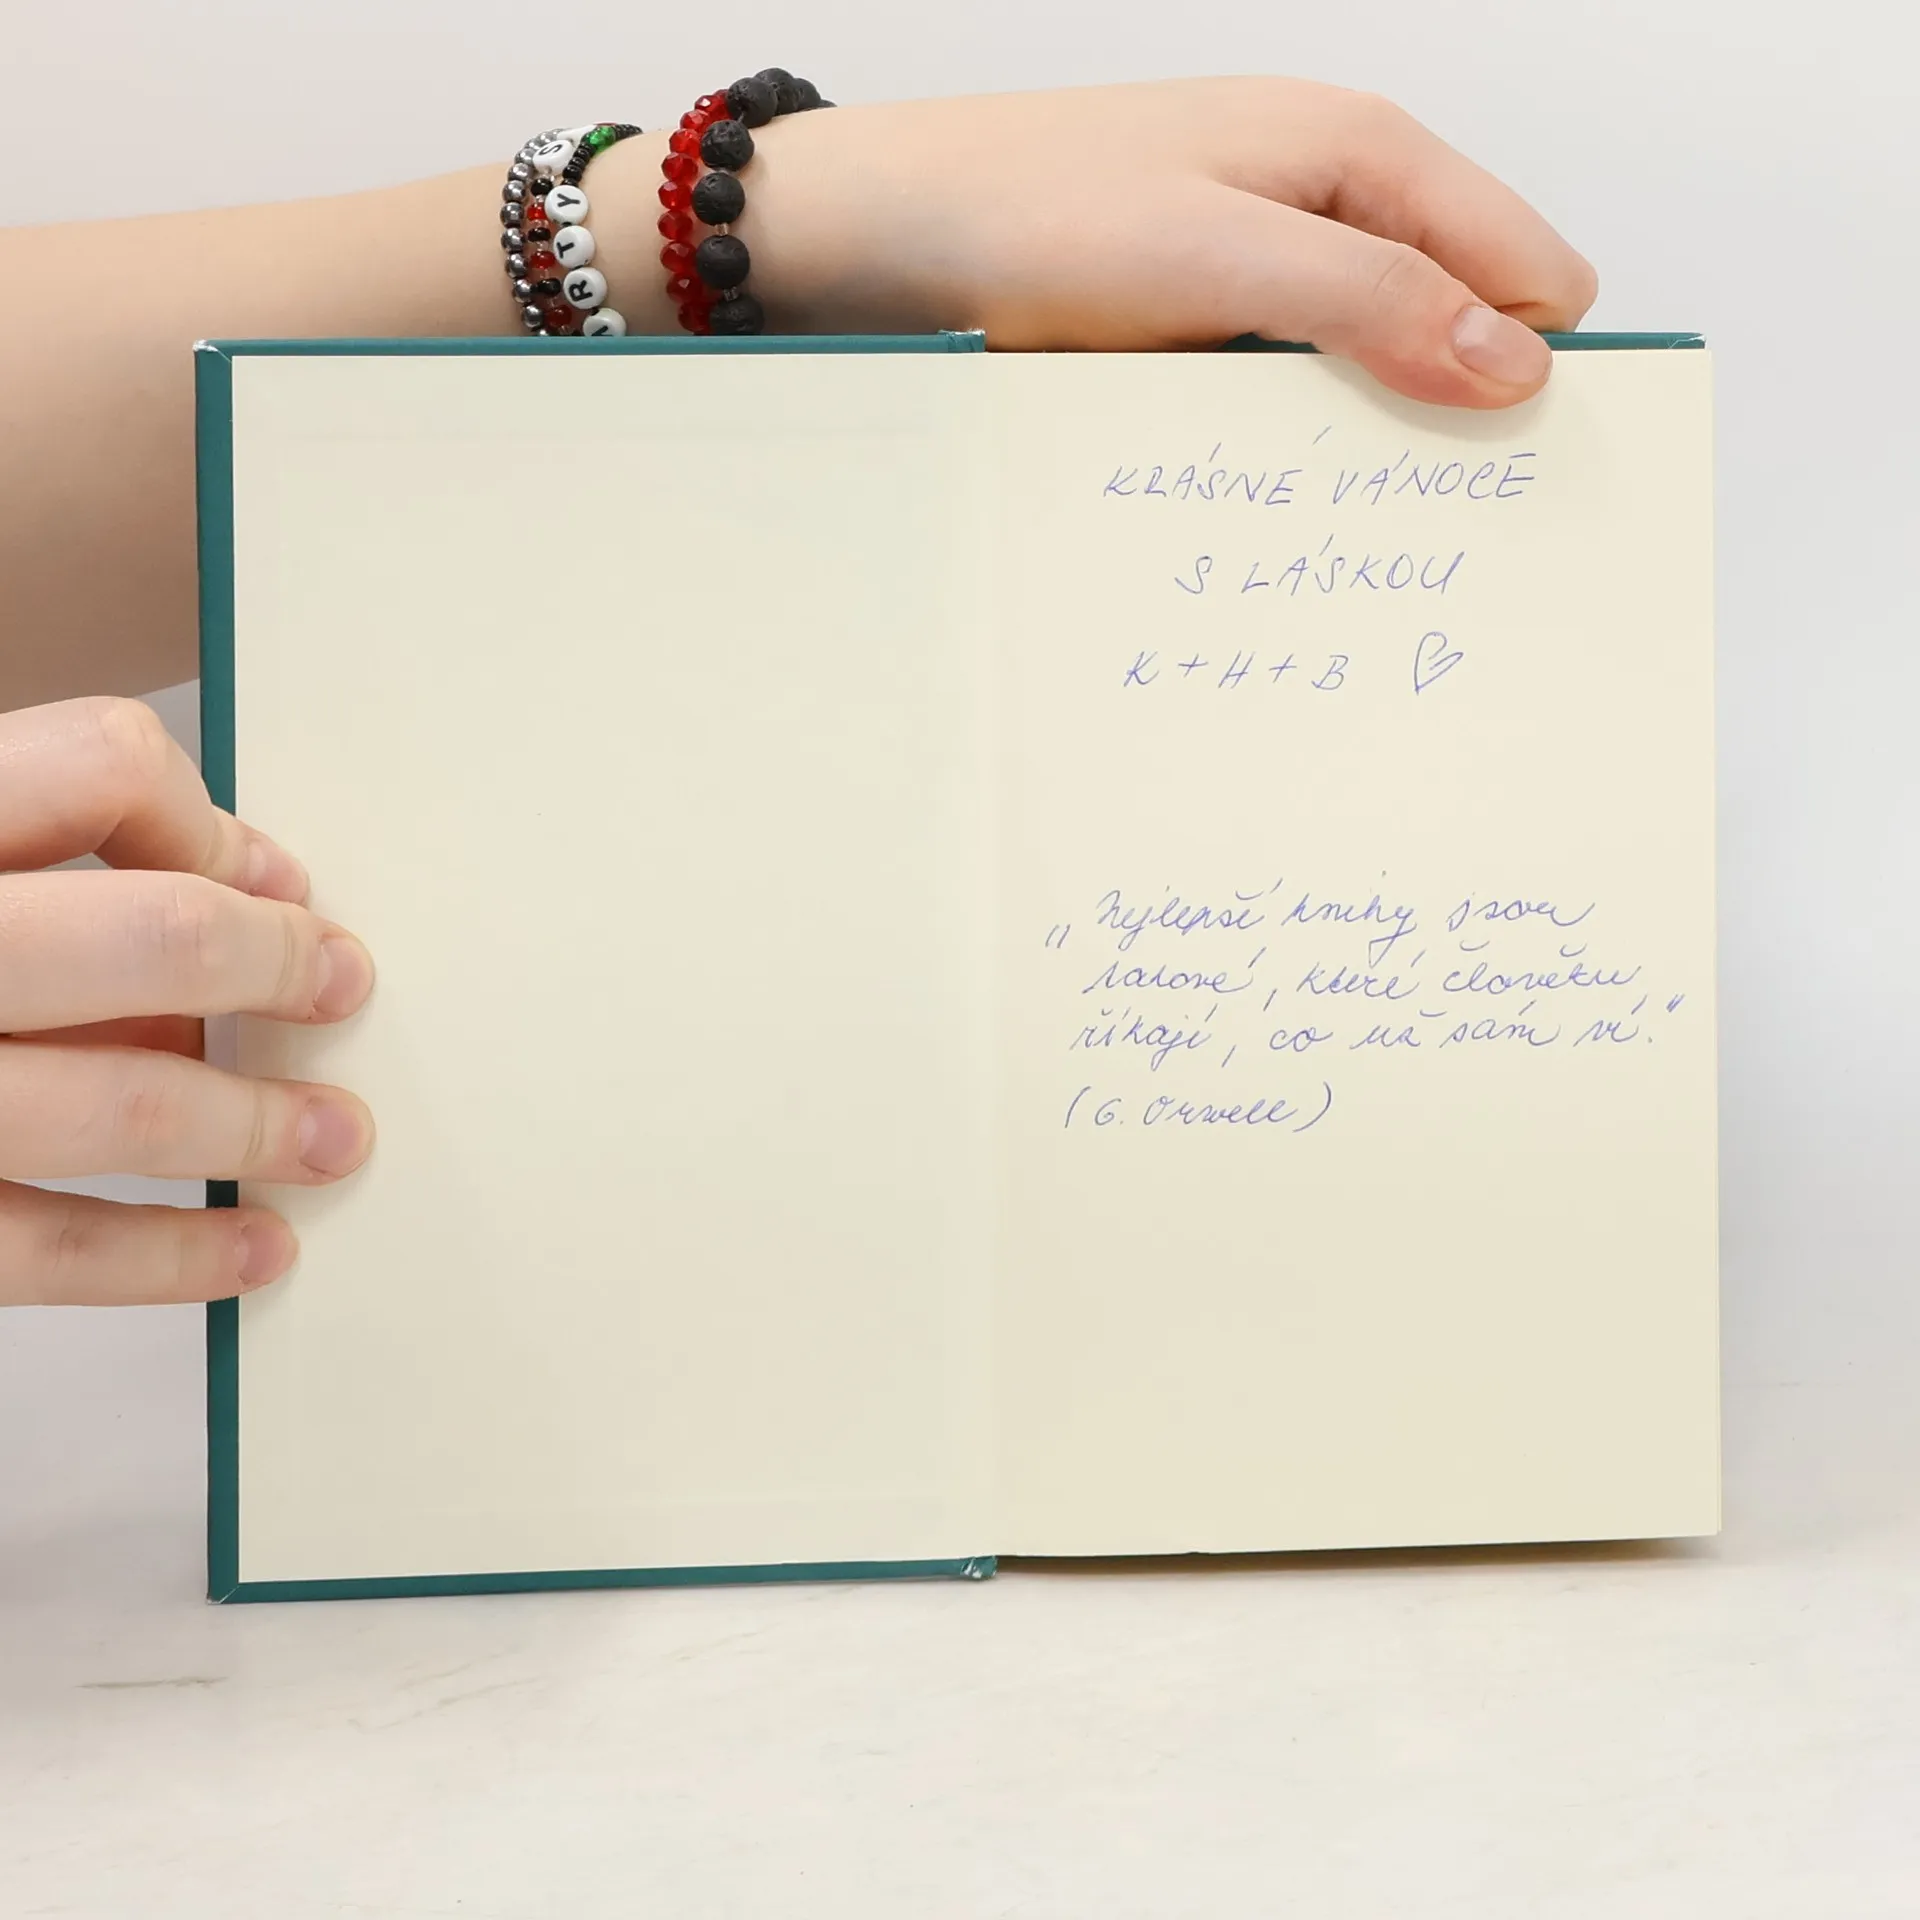 S
Y
T
R
A
KRÁSNÉ VÁNOCE
S LÁSKOU
K + H + B ♡
„Nejlepší knihy jsou
takové, které člověku
říkají, co už sám ví."
(G. Orwell)